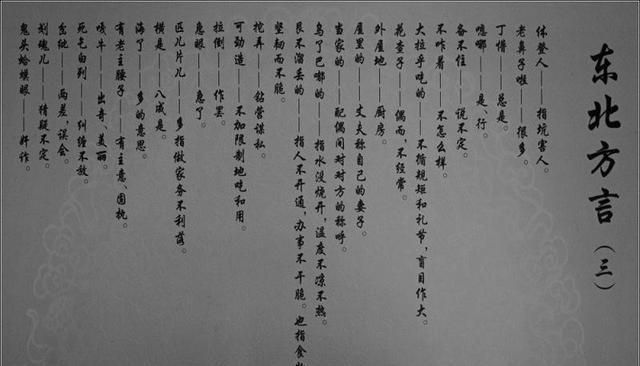 东北方言（三）
体登人——指坑害人。
老鼻子啦——很多。
丁——总是。
嗯哪——是、行。
备不住——说不定。
不咋着——不怎么样。
大拉乎吃的——不循规矩和礼节，盲目作大。
花查子——偶而，不经常。
外屋地——厨房。
屋里的——丈夫称自己的妻子。
当家的——配偶间对对方的称呼。
乌了巴嘟的——指水没烧开，温度不凉不热。
艮不溜丢的——指人不开通，办事不干脆。也指食
坚韧而不脆。
挖弄——钻营谋私。
可劲造——不加限制地吃和用。
拉倒——作罢。
急眼——急了。
区儿片儿——多指做家务不利落。
横是——八成是。
海了——多的意思。
有老主腰子——有主意、固执。
嘎牛——出奇、美丽。
死乞白列——纠缠不放。
岔纰——两差，误会。
划魂儿——猜疑不定。
鬼头蛤蟆眼——奸诈。